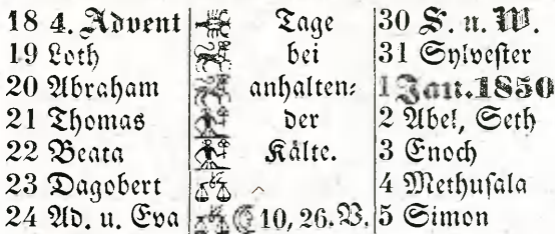 18 4. Advent Tage 30 S. n. W.
19 Loth bei 31 Sylvester
20 Abraham anhalten= 1 Jan. 1850
21 Thomas der 2 Abel, Seth
22 Beata Kälte. 3 Enoch
23 Dagobert 4 Methusala
24 Ad. u. Eva 10, 26. V. 5 Simon